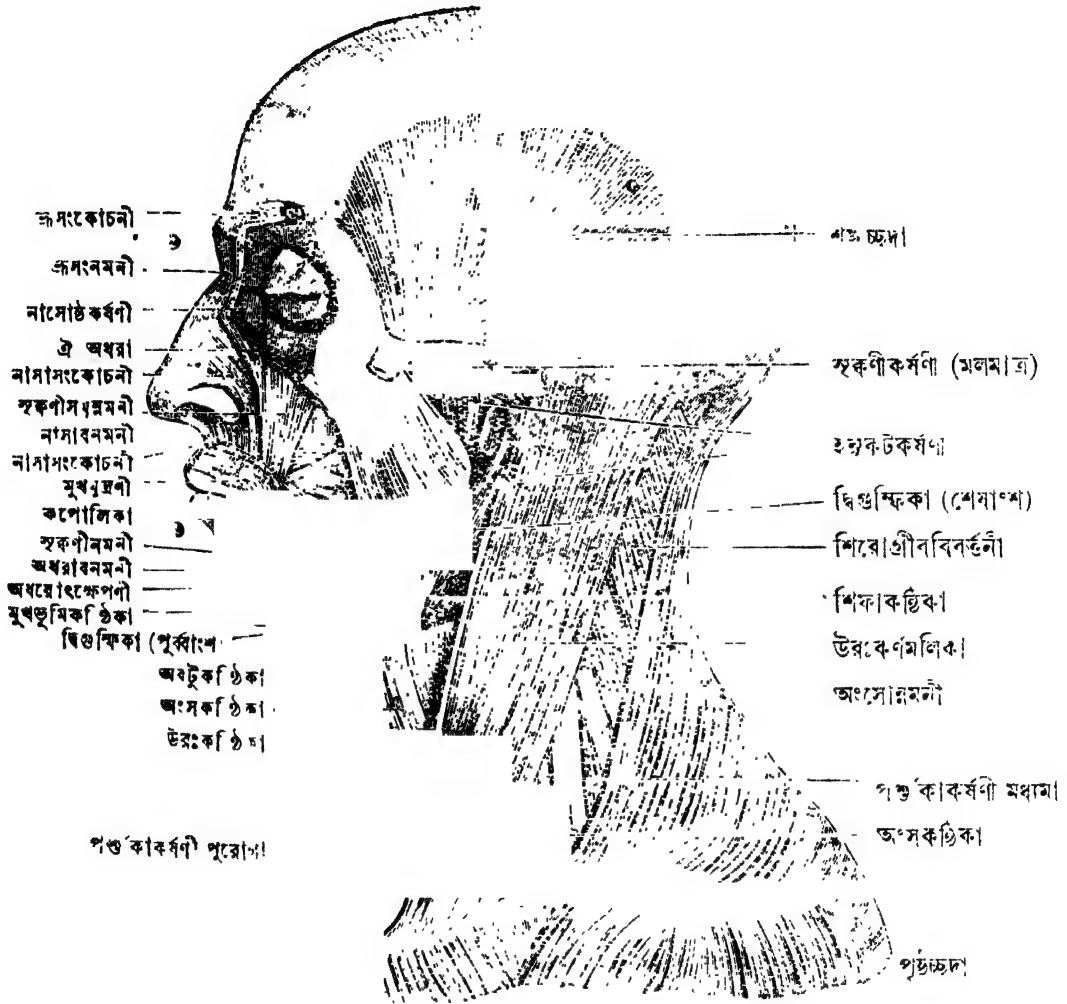 ভ্রূসংকোচনী
ভ্রূসংনমনী
নাসোষ্ঠকর্ষণী
ঐ অধরা
নাসাসংকোচনী
সৃক্কণীসমুন্নমনী
নাসাবনমনী
নাসাসংকোচনী
মুখমুদ্রণী
কপোলিকা
সৃক্কণীনমনী
অধরাবনমনী
অধরোৎক্ষেপণী
মুখভূমিকণ্ঠিকা
দ্বিগুম্ফিকা (পূর্ব্বাংশ
অবটুকণ্ঠিকা
অংসকণ্ঠিকা
উরঃকণ্ঠিকা
পর্শুকাকর্ষণী পুরোগা
শঙ্খচ্ছদা
সৃক্কণীকর্ষণী (মূলমাত্র)
দ্বিগুম্ফিকা (শেষাংশ)
শিরোগ্রীববিবর্ত্তনী
শিফাকণ্ঠিকা
উরঃকর্ণমূলিকা
অংসোন্নমনী
পর্শুকাকর্ষণী মধ্যমা
অংসকণ্ঠিকা
পৃষ্ঠচ্ছদা